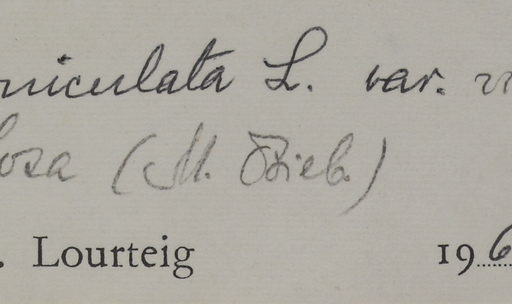 niculata L. var. vi
losa (M. Bieb.)
. Lourteig 196